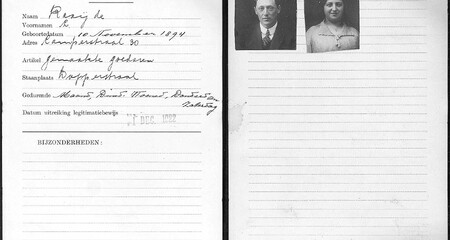 Naam Rooij de
Voornamen R.
Geboortedatum 10 November 1894
Adres Camperstraat 30
Artikel gemaakte goederen
Staanplaats Dapperstraat
Gedurende Maand, Dinsd. Woensd., Donderd. en
Zaterdag
Datum uitreiking legitimatiebewijs DEC. 1922
BIJZONDERHEDEN: